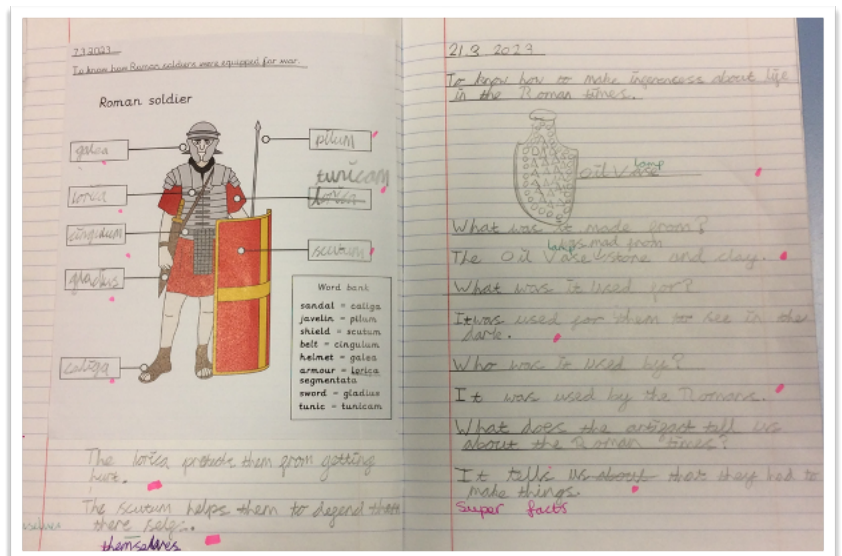 7.3.2023
To know how Roman soldiers were equipped for war.
Roman soldier
galea
pilum
tunicam
lorica
lorica
cingulum
scutum
gladius
caliga
Word bank
sandal = caliga
javelin = pilum
shield = scutum
belt = cingulum
helmet = galea
armour = lorica
segmentata
sword = gladius
tunic = tunicam
The lorica protects them from getting
hurt.
The scutum helps them to defend
there selfs.
themselves
21.3.2023
To know how to make inferences about life
in the Roman times.
Oil Vase lamp
What was it made from?
The Oil Vase stone and clay.
What was it used for?
It was used for them to see in the
dark.
Who was it used by?
It was used by the Romans.
What does the artifact tell us
about the Roman times?
It tells us about that they had to
make things.
Super facts